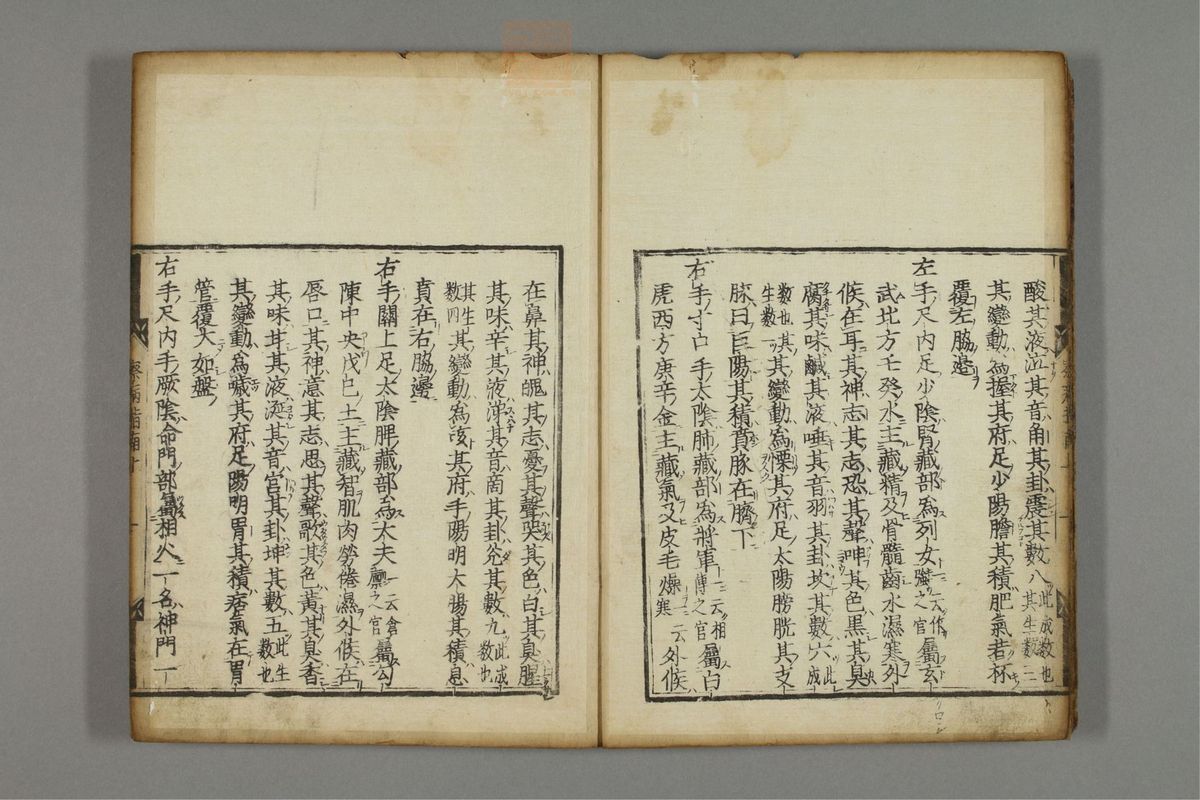 酸其液泣其音角其卦震其數八此成數也其生數三
其變動為握其府足少陽膽其積肥氣若杯
覆左脇邊
左手尺内足少陰腎藏部為列女一云作強之官屬玄
武北方壬癸水主藏精及骨髓齒水濕寒外
候在耳其神志其志恐其聲呻其色黒其臭
腐其味鹹其液唾其音羽其卦坎其數六此成數也生數一
其變動為慄其府足太陽膀胱其支
脉曰巨陽其積賁豚在臍下
右手寸口手太陰肺藏部為將軍一云相傳之官屬白
虎西方庚辛金主藏氣及皮毛燥寒一云外候
在鼻其神魄其志憂其聲哭其色白其臭腥
其味辛其液涕其音商其卦兊其數九此成數也
其生數四其變動為咳其府手陽明大膓其積息
賁在右脇邊
右手關上足太陰脾藏部為太夫一云倉廪之官屬公
陳中央戊巳土主藏智肌肉勞倦濕外候在
唇口其神意其志思其聲歌其色黃其臭香
其味甘其液涎其音宮其卦坤其數五此生數也
其變動為噦其府足陽明胃其積痞氣在胃
管覆大如盤
右手尺内手厥陰命門部屬相火一名神門一